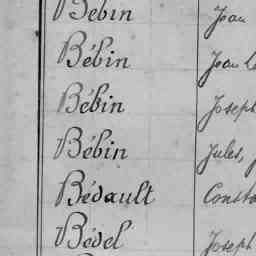 Bébin Jean
Bébin Jean
Bébin Joseph
Bébin Jules,
Bédault
Bédel Joseph